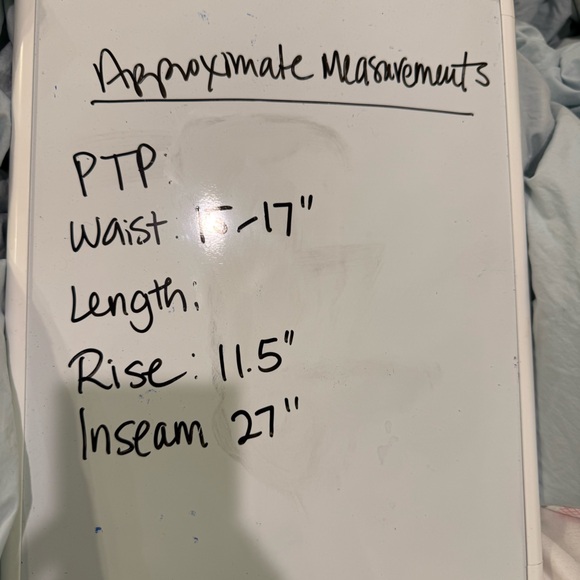 Approximate Measurements
PTP:
Waist: 15-17"
Length:
Rise: 11.5"
Inseam 27"